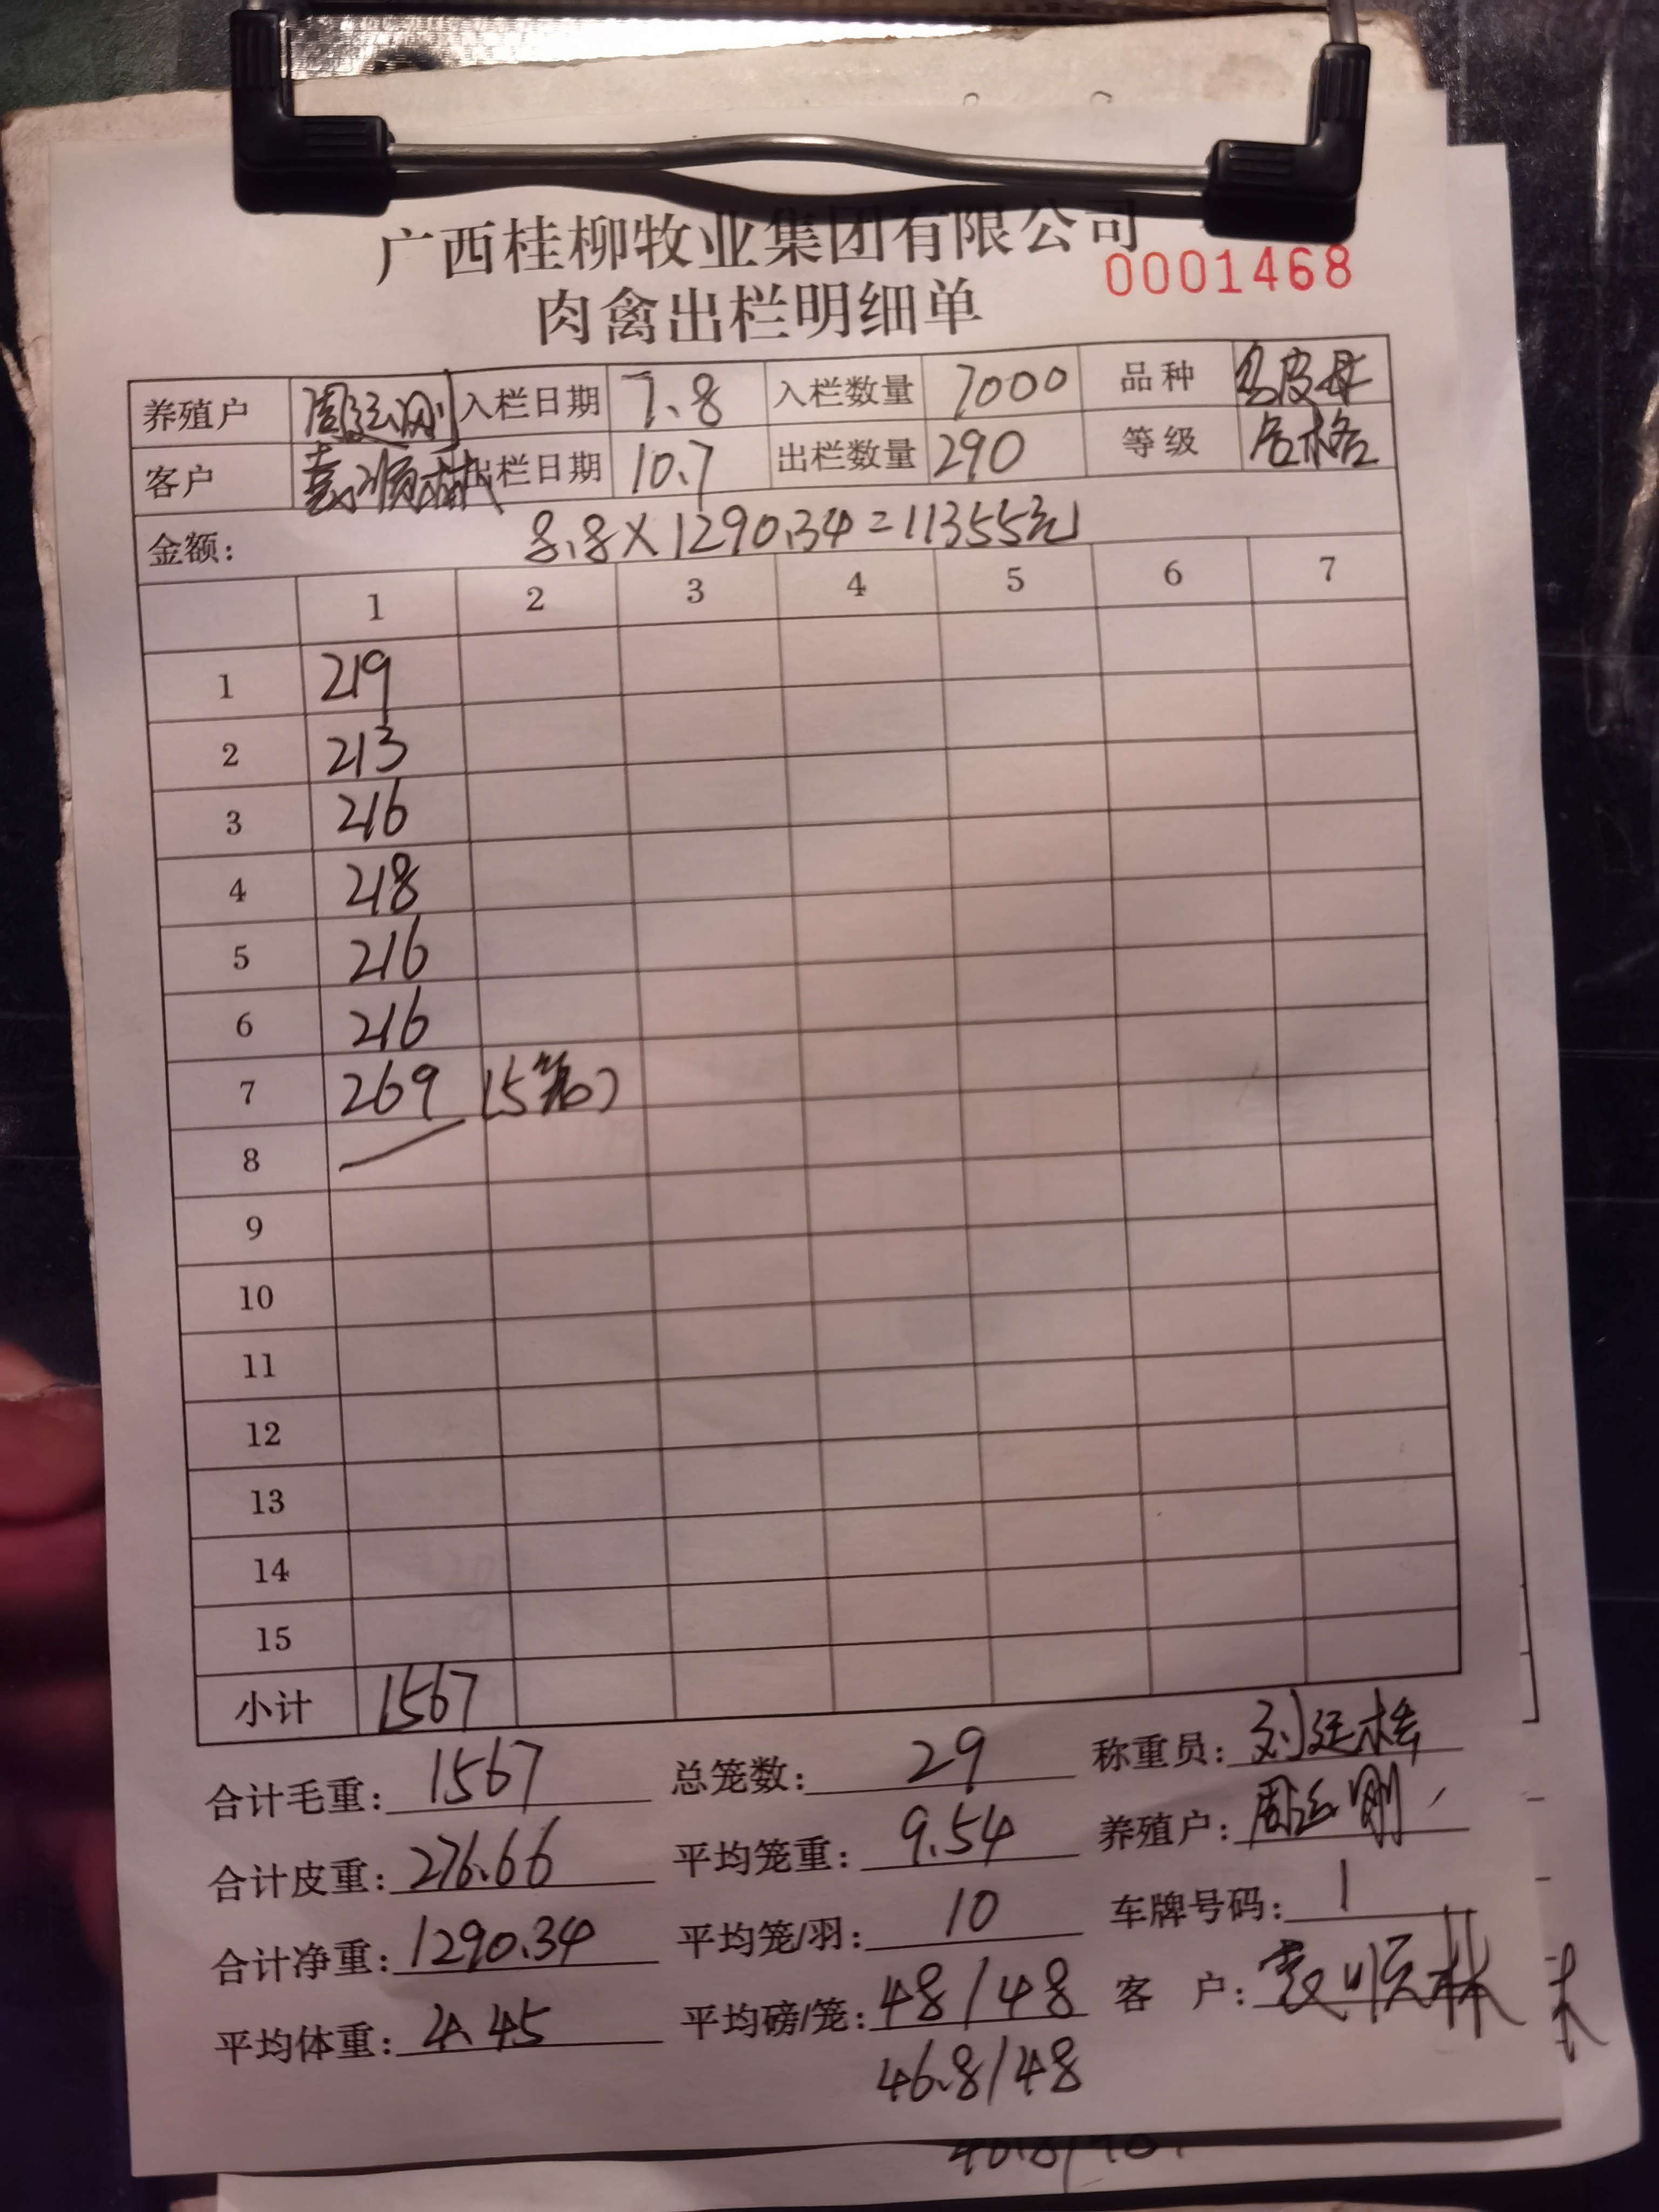 广西桂柳牧业集团有限公司
0001468
肉禽出栏明细单
养殖户 周运刚 入栏日期 7.8 入栏数量 7000 品种 乌皮母
客户 袁顺林 出栏日期 10.7 出栏数量 290 等级 合格
金额: 8.8×1290.34=11355元
1 2 3 4 5 6 7
1 219
2 213
3 216
4 218
5 216
6 216
7 269 (5笼)
8
9
10
11
12
13
14
15
小计 1567
合计毛重: 1567 总笼数: 29 称重员: 刘廷
合计皮重: 276.66 平均笼重: 9.54 养殖户: 周运刚
合计净重: 1290.34 平均笼/羽: 10 车牌号码: 1
平均体重: 4.45 平均磅/笼: 48/48 客 户: 袁顺林
46.8/48